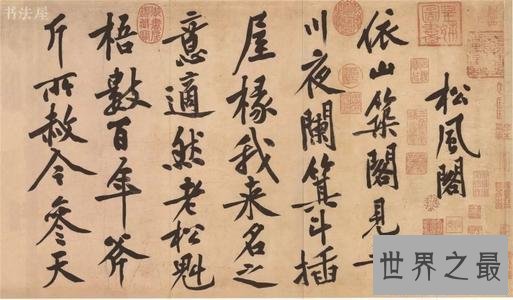 松風閣
依山築閣見
川夜闌箕斗插
屋椽我來名之
意適然老松魁
梧數百年斧
斤所赦今參天
书法屋
世界之最